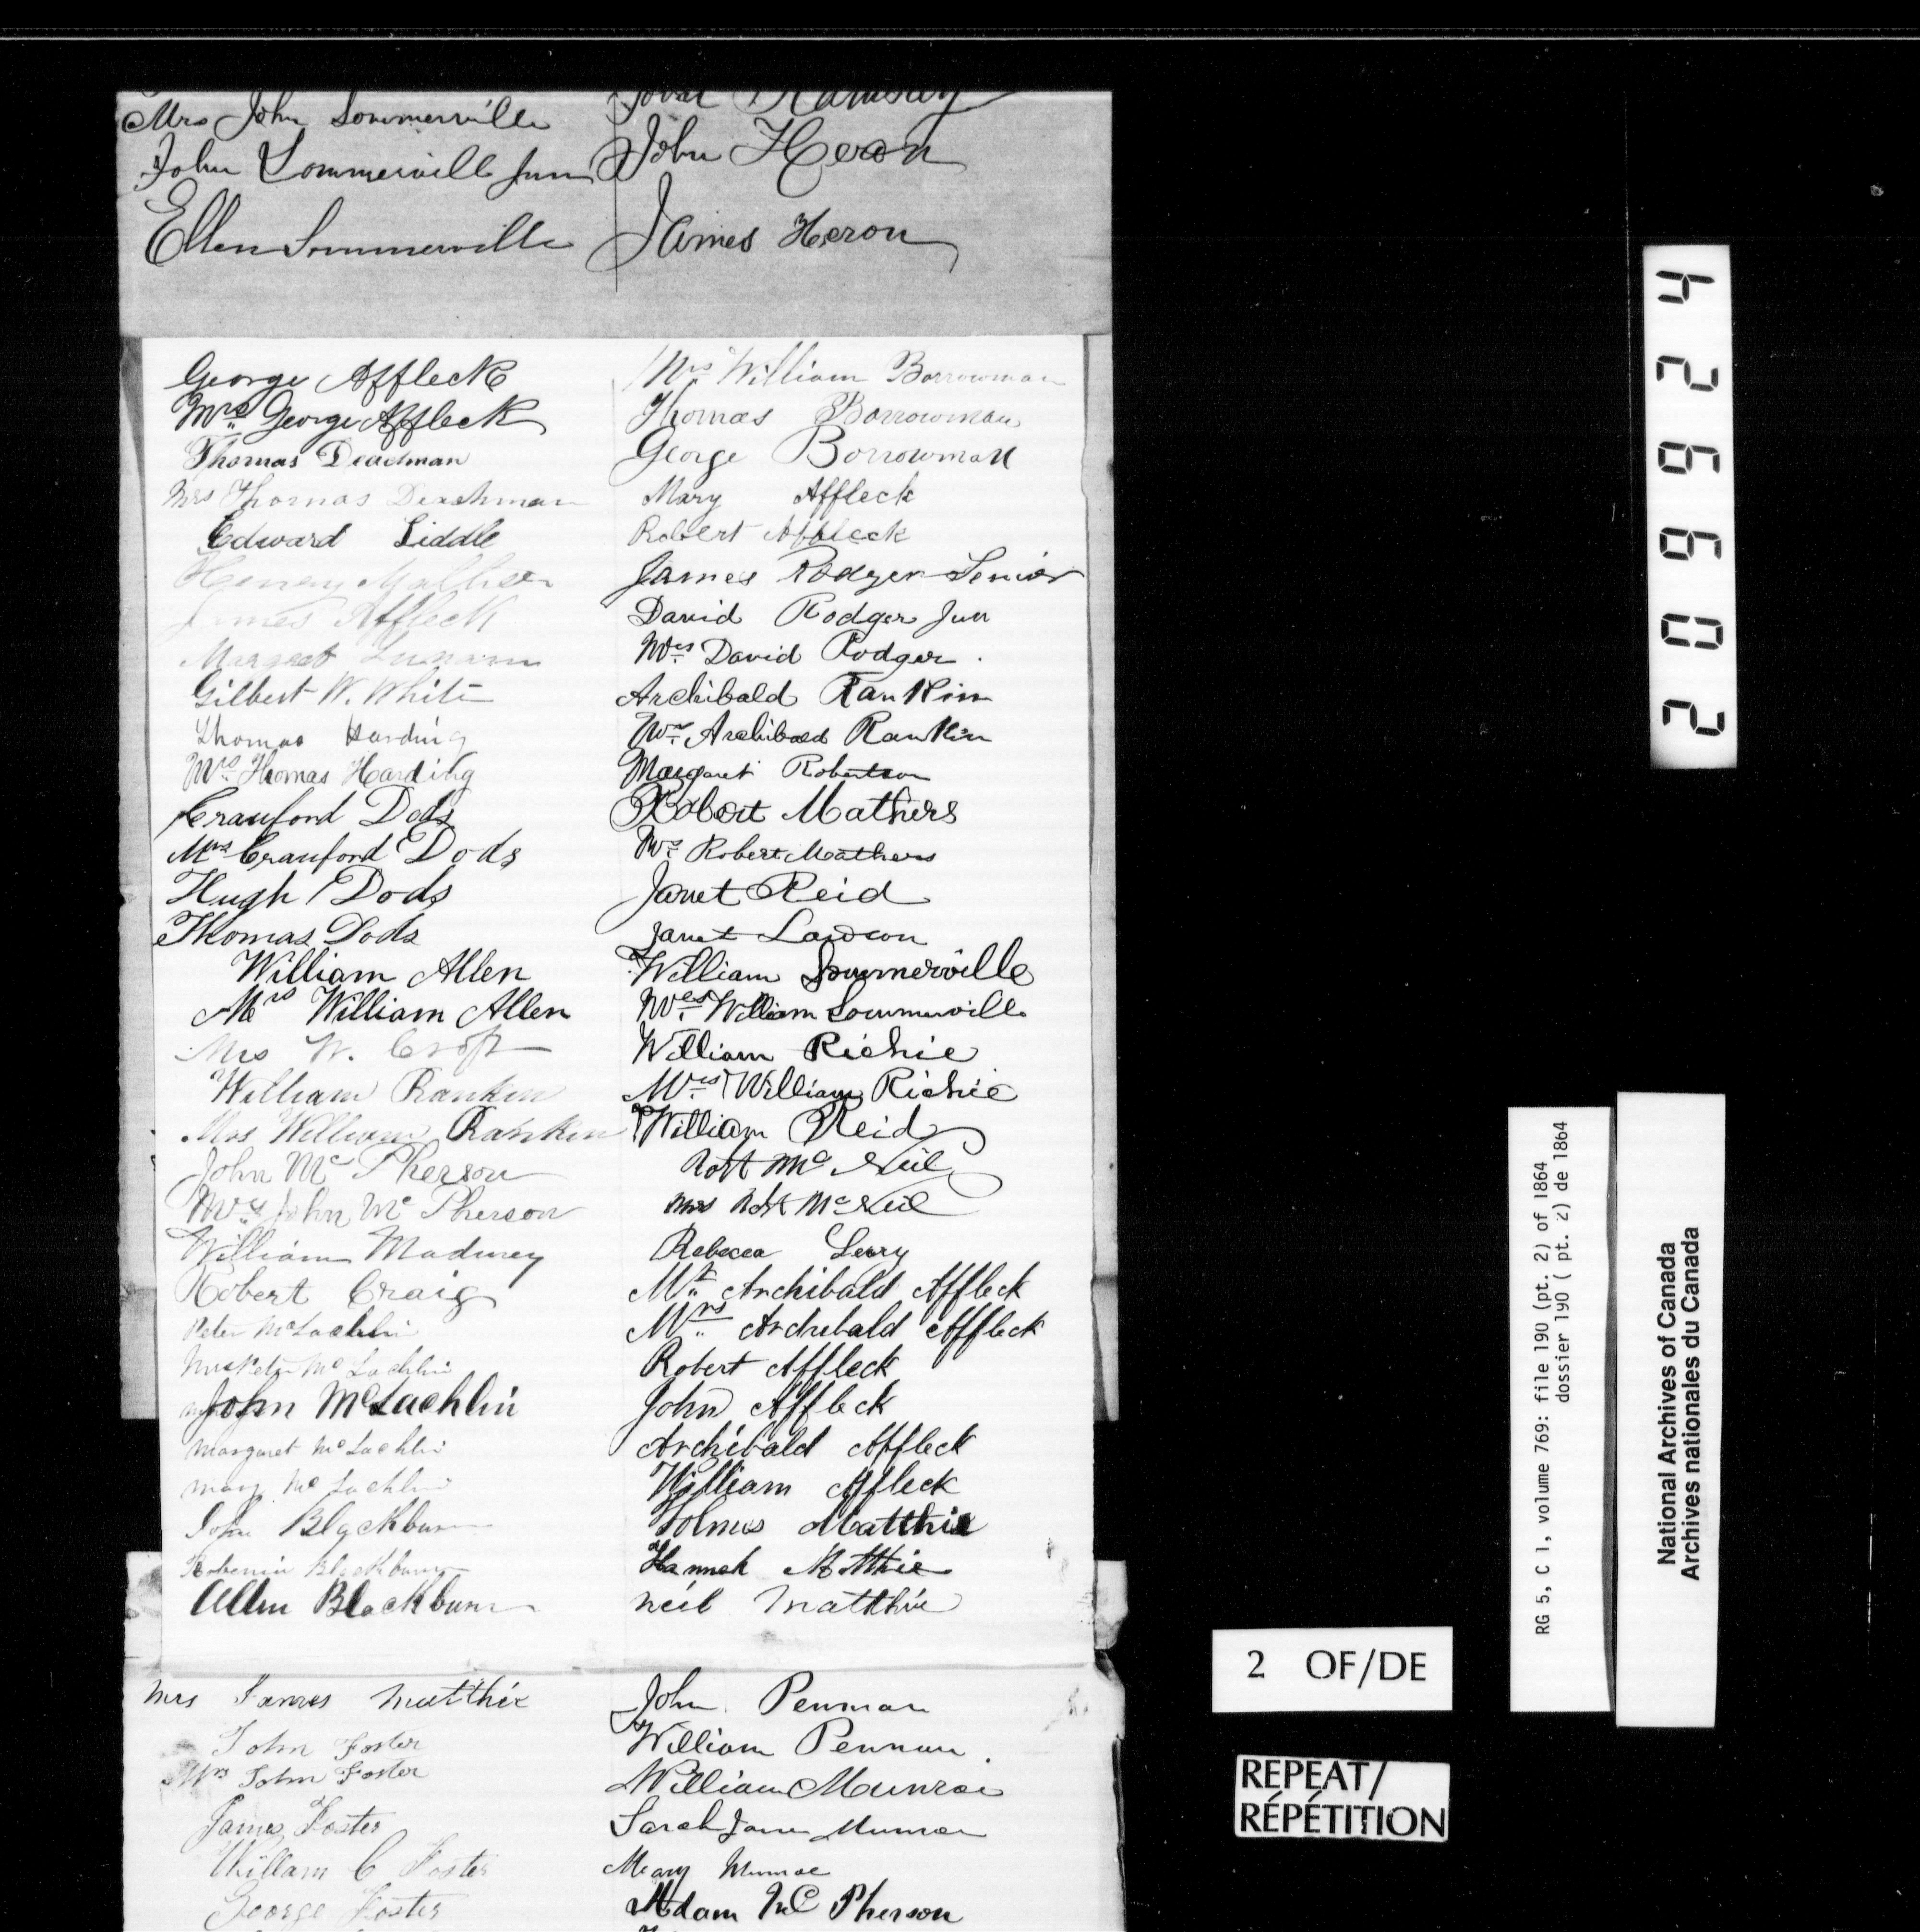 Mrs John Sommerville
John Sommerville Jun
Ellen Sommerville
Ramsay
John Heron
James Heron
George Affleck
Mrs George Affleck
Thomas Deachman
Mrs Thomas Deachman
Edward Liddle
Henery
James Affleck
Margret
Gilbert W. White
Thomas Harding
Mrs Thomas Harding
Crauford Dods
Mrs Crauford Dods
Hugh Dods
Thomas Dods
William Allen
Mrs William Allen
Mrs W. Croft
William Rankin
Mrs William Rankin
John Mc Pherson
Mrs John Mc Pherson
William
Robert Craig
Peter McLachlin
Mrs Peter Mc Lachlin
John McLachlin
Margaret Mc Lachlin
mary Mc Lachlin
John Blackburn
Blackburn
Allen Blackburn
Mrs William Borrowman
Thomas Borrowman
George Borrowman
Mary Affleck
Robert Affleck
James Rodger Senior
David Rodger Jun
Mrs David Rodger
Archibald Rankin
Mrs Archibald Rankin
Margaret Robertson
Robert Mathers
Mrs Robert Mathers
Janet Reid
Janet Lawson
William Sommerville
Mrs William Sommerville
William Richie
Mrs William Richie
William Reid
Robt Mc Neil
Mrs Robt McNeil
Rebecca
Mr Archibald Affleck
Mrs Archibald Affleck
Robert Affleck
John Affleck
Archibald Affleck
William Affleck
Matthie
Hannah Matthie
Neil Matthie
Mrs James Matthie
John Foster
Mrs John Foster
James Foster
William C Foster
George Foster
John Penman
William Penman.
William Munroe
Sarah Jane Munroe
Mary Munroe
Adam Mc Pherson
209924
RG 5, C 1, volume 769: file 190 (pt. 2) of 1864
dossier 190 ( pt. 2) de 1864
National Archives of Canada
Archives nationales du Canada
2 OF/DE
REPEAT/
RÉPÉTITION